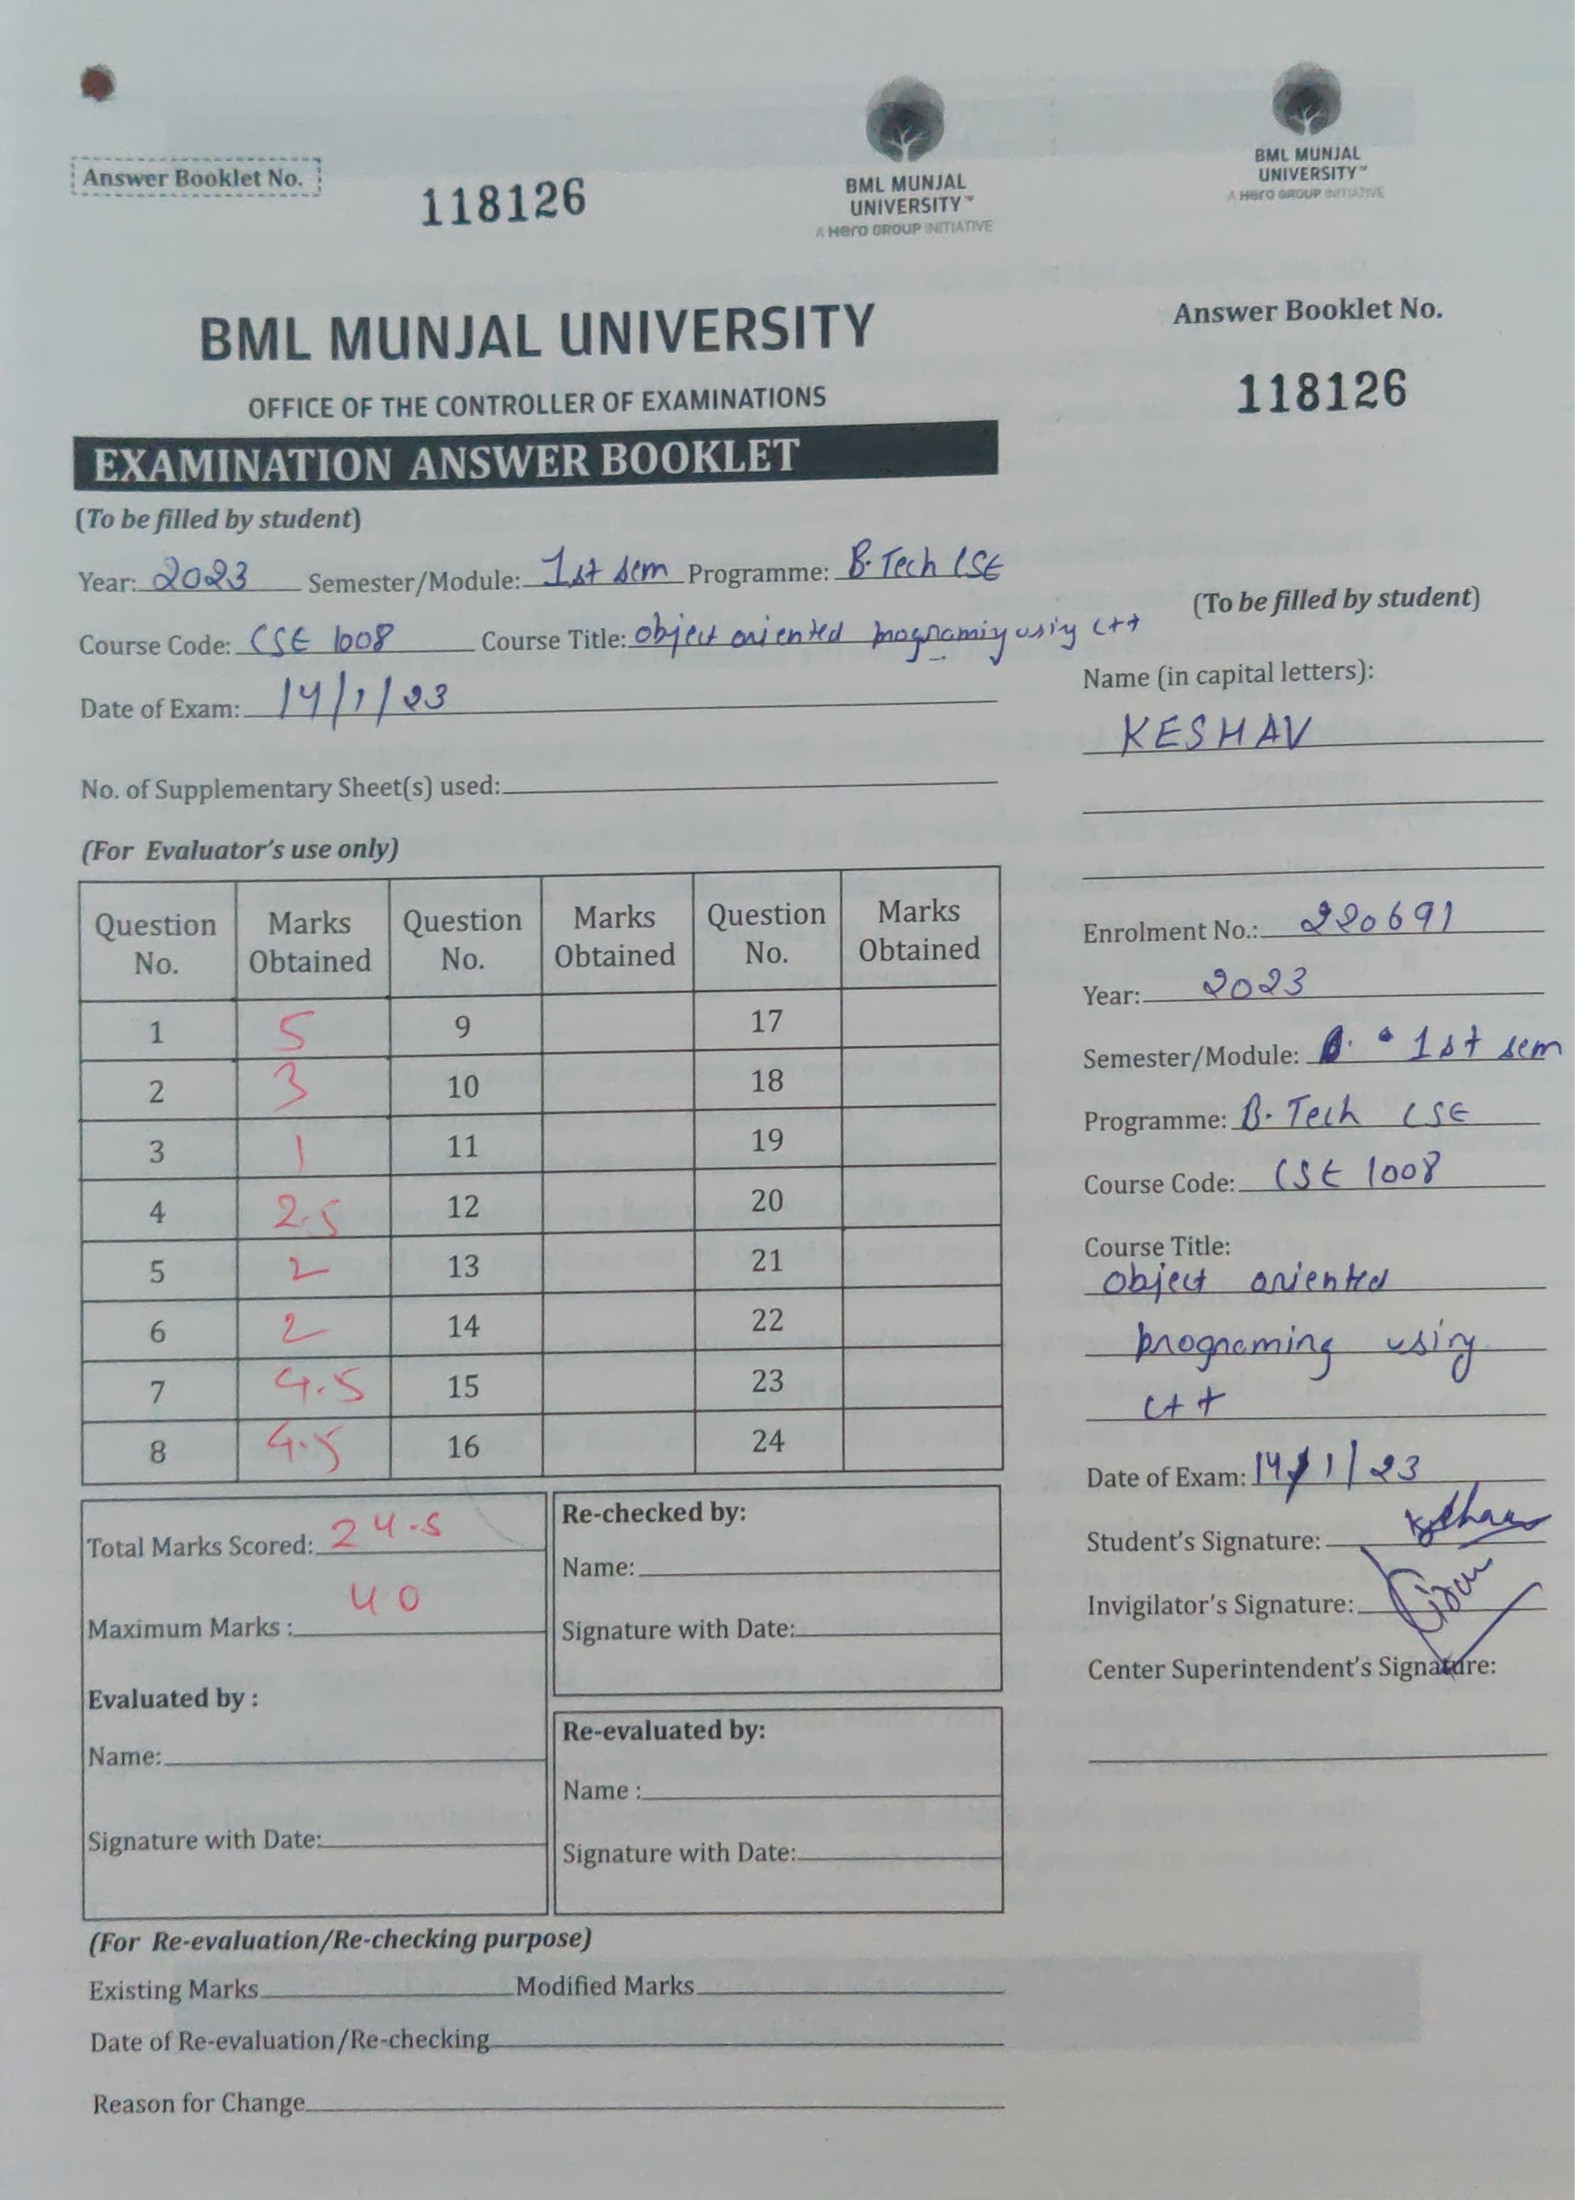 Answer Booklet No.
118126
BML MUNJAL
UNIVERSITY™
A Hero GROUP INITIATIVE
BML MUNJAL
UNIVERSITY™
A Hero GROUP INITIATIVE
BML MUNJAL UNIVERSITY
OFFICE OF THE CONTROLLER OF EXAMINATIONS
EXAMINATION ANSWER BOOKLET
(To be filled by student)
Year: 2023 Semester/Module: 1st sem Programme: B.Tech CSE
Course Code: CSE 1008 Course Title: object oriented programiy usiy c++
Date of Exam: 14/1/23
No. of Supplementary Sheet(s) used:
(For Evaluator's use only)
Question No. Marks Obtained Question No. Marks Obtained Question No. Marks Obtained
1 5 9 17
2 3 10 18
3 1 11 19
4 2.5 12 20
5 2 13 21
6 2 14 22
7 4.5 15 23
8 4.5 16 24
Total Marks Scored: 24.5
Maximum Marks : 40
Evaluated by :
Name:
Signature with Date:
Re-checked by:
Name:
Signature with Date:
Re-evaluated by:
Name :
Signature with Date:
(For Re-evaluation/Re-checking purpose)
Existing Marks Modified Marks
Date of Re-evaluation/Re-checking
Reason for Change
Answer Booklet No.
118126
(To be filled by student)
Name (in capital letters):
KESHAV
Enrolment No.: 220691
Year: 2023
Semester/Module: 1st sem
Programme: B.Tech CSE
Course Code: CSE 1008
Course Title:
object oriented
programing using
c++
Date of Exam: 14/1/23
Student's Signature:
Invigilator's Signature:
Center Superintendent's Signature: